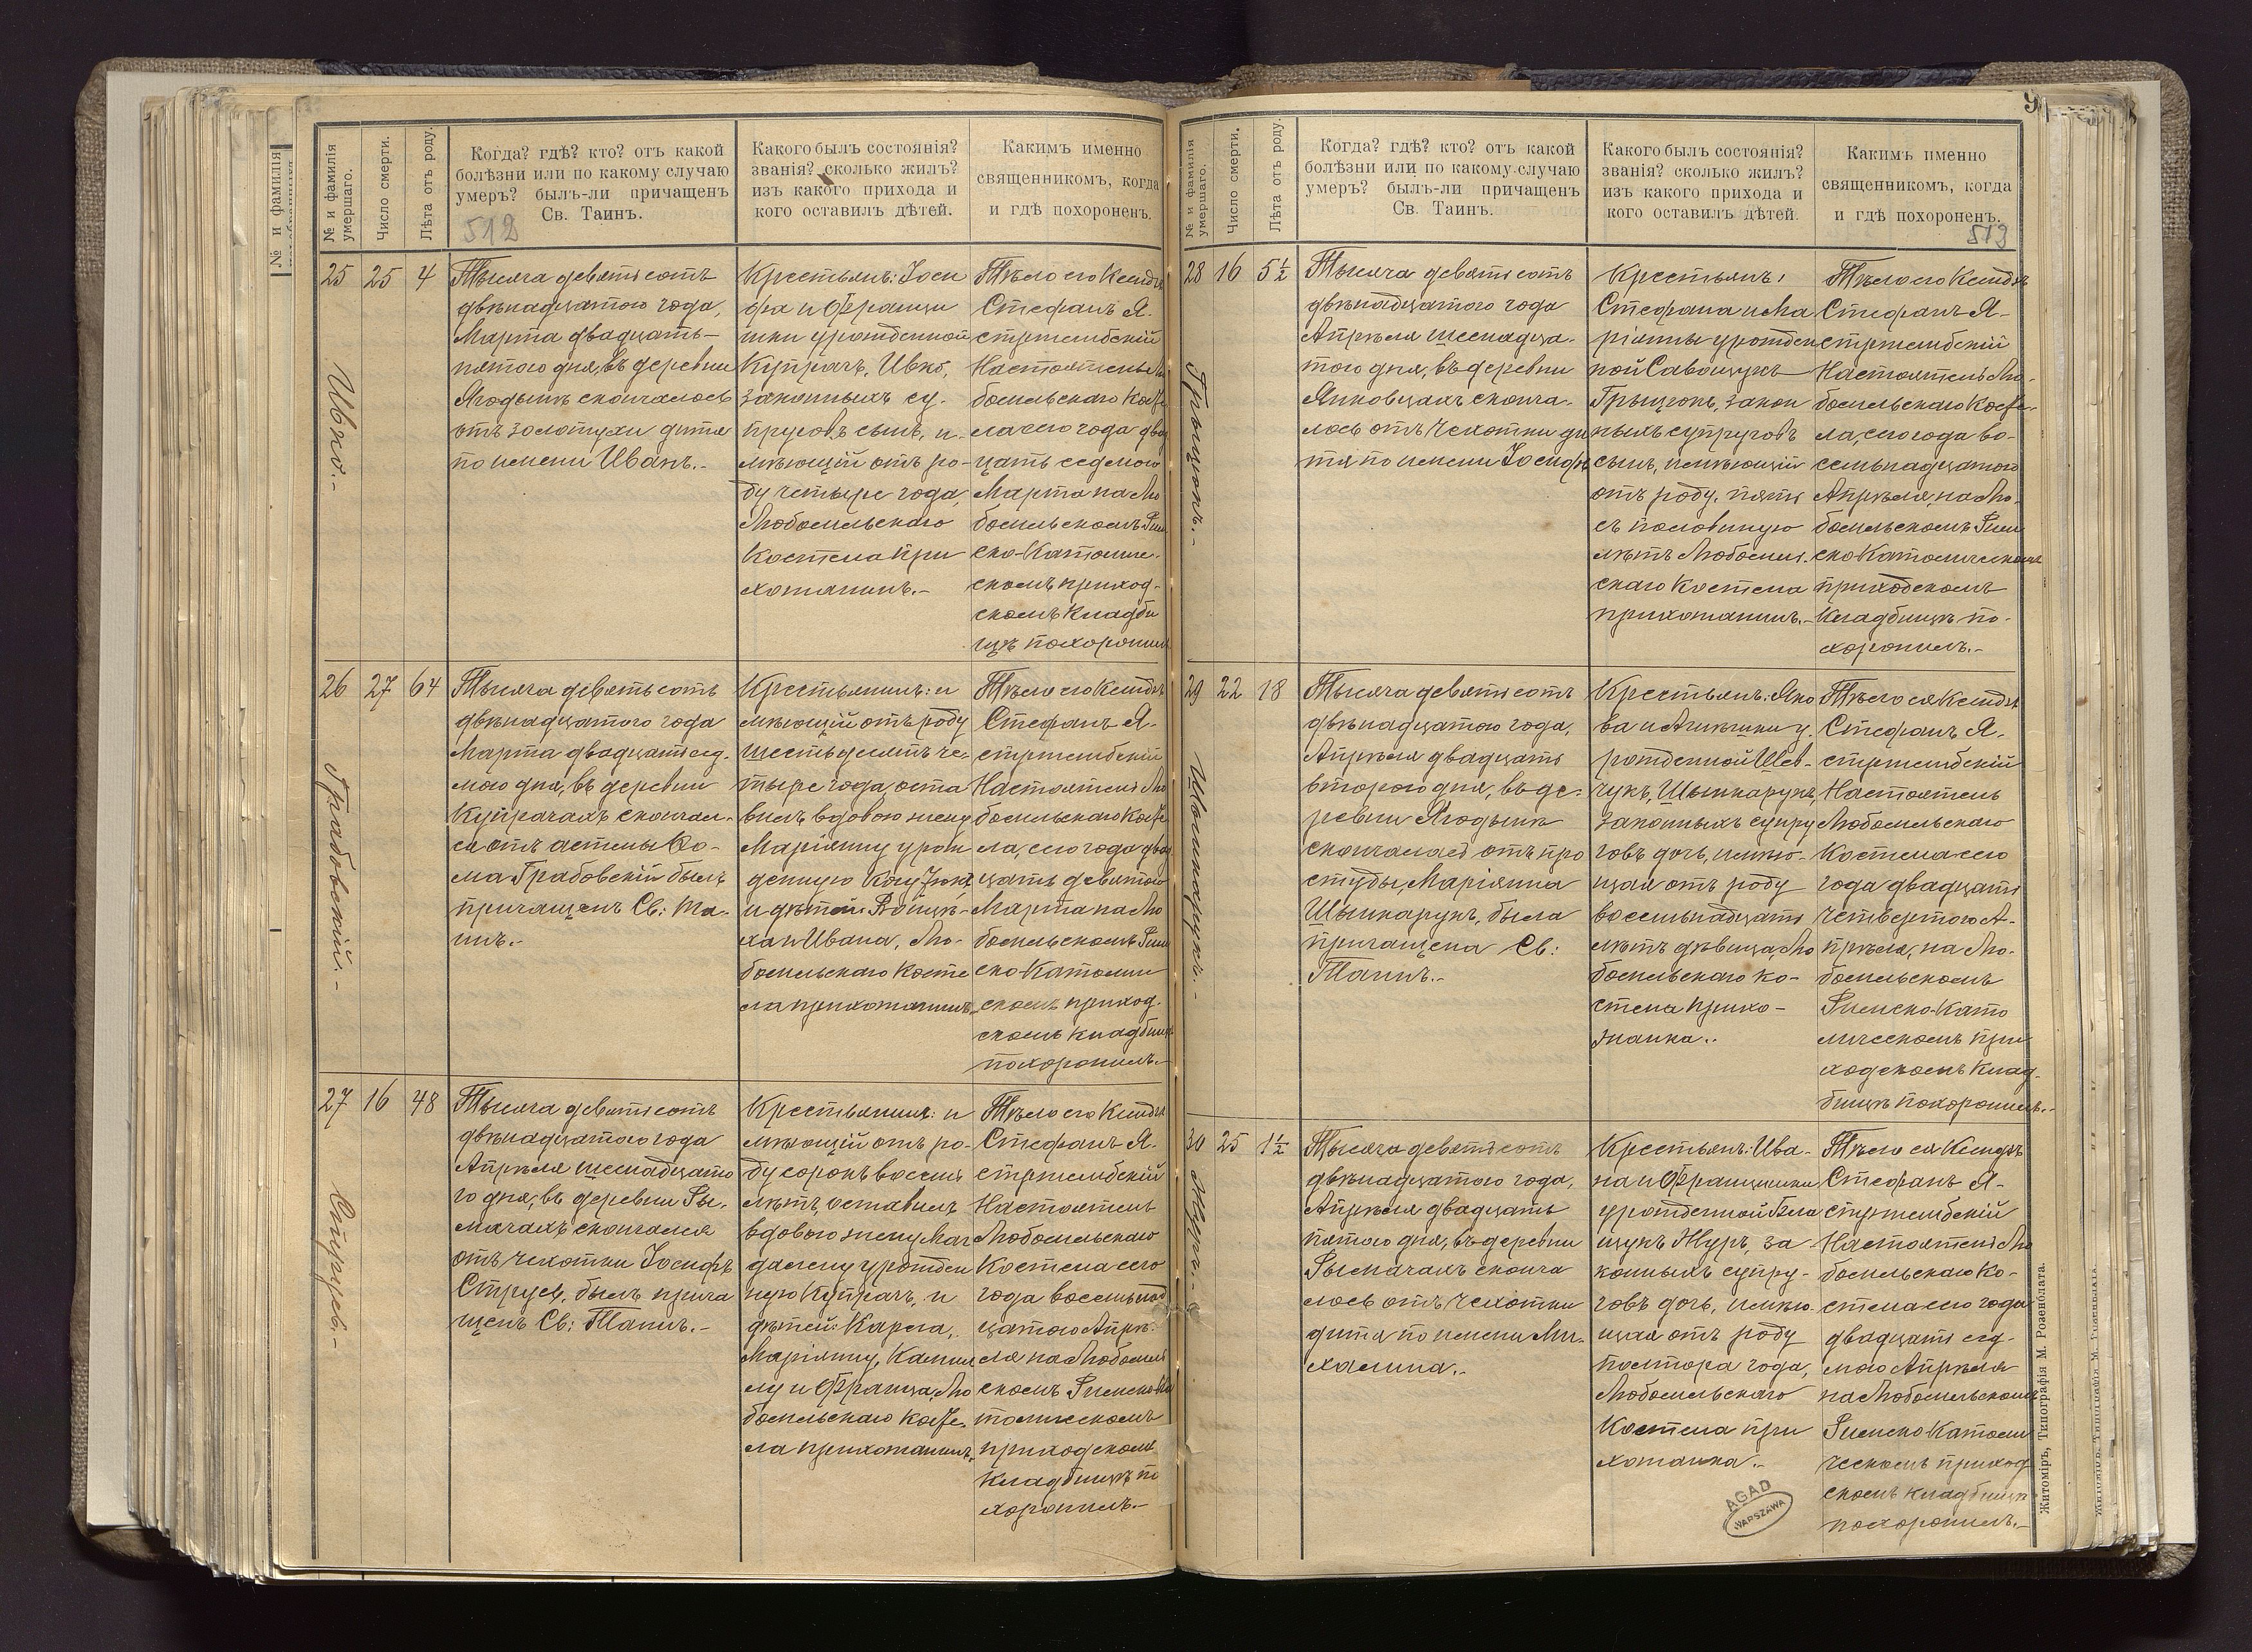 № и фамилія
№ и фамилія
умершаго.
Число смерти.
Лѣта отъ роду.
Когда? гдѣ? кто? отъ какой
болѣзни или по какому случаю
умеръ? былъ-ли причащенъ
Св. Таинъ.
512
Какого былъ состоянія?
званія? сколько жилъ?
изъ какого прихода и
кого оставилъ дѣтей.
Какимъ именно
священникомъ, когда
и гдѣ похороненъ.
25
Ивко.-
25
4
Тысяча девятьсотъ
двѣнадцатого года,
Марта двадцать-
пятого дня, въ деревни
Ягодынѣ скончалось
отъ золотухи дитя
по имени Иванъ.-
Крестьянъ: Іоси
фа и Францы
шки урожденной
Купрачъ, Ивко,
законныхъ су-
пруговъ сынъ, и-
мѣющій отъ ро-
ду четыре года,
Любомльскаго
Костела при
хожанинъ.-
Тѣло его Ксендзъ
Стефанъ Я-
стржембскій
Настоятель Лю
бомльскаго Косте
ла сего года два
цать седмого
Марта на Лю
бомльскомъ Рим
ско-Католиче-
скомъ приход-
скомъ кладби
щѣ похоронилъ
26
Грабовскій.-
27
64
Тысяча девятьсотъ
двѣнадцатого года
Марта двадцать сед-
мого дня, въ деревни
Купрачахъ скончал-
ся отъ астмы Фо-
ма Грабовскій былъ
причащенъ Св: Та-
инъ.-
Крестьянинъ: и
мѣющій отъ роду
шестьдесятъ че-
тыре года, оста
вилъ вдовою жену
Маріянну урож
денную
и дѣтей: Войцѣ-
ха и Ивана, Лю-
бомльскаго Косте
ла прихожанинъ.
Тѣло его Ксендзъ
Стефанъ Я-
стржембскій
Настоятель Лю
бомльскаго Косте
ла, сего года два
цать девятого
Марта на Лю
бомльскомъ Рим
ско-Католи
скомъ приход-
скомъ кладбищѣ
похоронилъ.-
27
Струсь.-
16
48
Тысяча девятьсотъ
двѣнадцатого года
Апрѣля шеснадцато
го дня, въ деревни Ры-
мачахъ скончался
отъ чехотки Іосифъ
Струсь, былъ прича
щенъ Св: Таинъ.-
Крестьянинъ: и
мѣющій отъ ро-
ду сорокъ восемь
лѣтъ, оставилъ
вдовою жену Маг
далену урожден
ную Купрачъ, и
дѣтей: Карла,
Маріянну, Камил
лу и Франца, Лю
бомльскаго Косте
ла прихожанинъ.
Тѣло его Ксендзъ
Стефанъ Я-
стржембскій
Настоятель
Любомльскаго
Костела сего
года восемьнад
цатого Апрѣ-
ля на Любомль
скомъ Римско Ка
толическомъ
приходскомъ
Кладбищѣ по
хоронилъ.-
9
№ и фамилія
умершаго.
Число смерти.
Лѣта отъ роду.
Когда? гдѣ? кто? отъ какой
болѣзни или по какому случаю
умеръ? былъ-ли причащенъ
Св. Таинъ.
Какого былъ состоянія?
званія? сколько жилъ?
изъ какого прихода и
кого оставилъ дѣтей.
Какимъ именно
священникомъ, когда
и гдѣ похороненъ.
513
28
Грыцюкъ.-
16
5½
Тысяча девятьсотъ
двѣнадцатого года
Апрѣля шеснадца-
того дня, въ деревни
Янковцахъ сконча-
лось отъ чехотки ди
тя по имени Іосифъ
Крестьянъ:
Стефана и Ма
ріанны урожден
ной Савощукъ
Грыцюкъ, закон
ныхъ супруговъ
сынъ, имѣющій
отъ роду, пять
съ половиную
лѣтъ Любомль-
скаго Костела
прихожанинъ.-
Тѣло его Ксендзъ
Стефанъ Я-
стржембскій
Настоятель Лю-
бомльскаго Косте-
ла, сего года во-
семьнадцатого
Апрѣля, на Лю-
бомльскомъ Рим
ско Католическомъ
приходскомъ
Кладбищѣ по-
хоронилъ.-
29
Шышкарукъ.-
22
18
Тысяча девятьсотъ
двѣнадцатого года,
Апрѣля двадцать
второго дня, въ де-
ревни Ягодынѣ
скончалась отъ про
студы, Маріянна
Шышкарукъ, была
причащена Св:
Таинъ.-
Крестьянъ: Яко
ва и Агнѣшки у-
рожденной Шев-
чукъ, Шышкарукъ,
законныхъ супру
говъ дочь, имѣю-
щая отъ роду
восемьнадцать
лѣтъ дѣвица, Лю
бомльскаго Ко-
стела прихо-
жанка..
Тѣло ея Ксендзъ
Стефанъ Я-
стржембскій
Настоятель
Любомльскаго
Костела сего
года двадцать
четвертого А-
прѣля, на Лю-
бомльскомъ
Римско-Като
лическомъ при
ходскомъ Клад-
бищѣ похоронилъ.-
30
Журъ.-
25
1½
Тысяча девятьсотъ
двѣнадцатого года,
Апрѣля двадцать
пятого дня, въ деревни
Рымачахъ сконча
лось отъ чехотки
дитя по имени Ми-
халина..
Крестьянъ: Ива-
на и Францишки
урожденной Бла
щукъ Журъ, за
конныхъ супру-
говъ дочь, имѣю-
щая отъ роду
полтора года,
Любомльскаго
Костела при
хожанка.-
Тѣло ея Ксендзъ
Стефанъ Я-
стржембскій
Настоятель Лю
бомльскаго Ко-
стела сего года
двадцать сед-
мого Апрѣля
на Любомльскомъ
Римско Католи
ческомъ приход
скомъ кладбищѣ
похоронилъ.-
AGAD
WARSZAWA
Житоміръ, Типографія М. Розенблата.